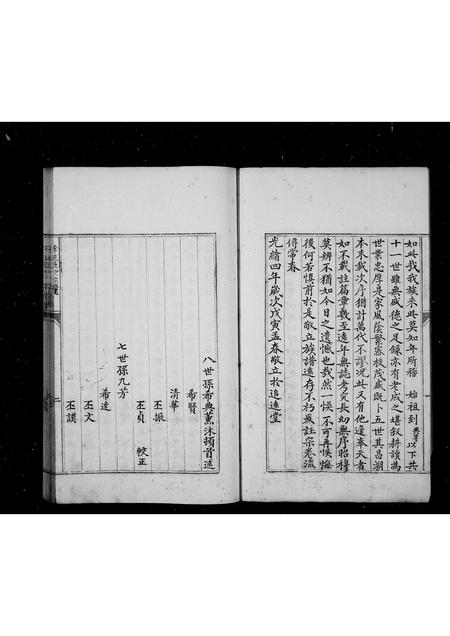 如此我我族來此莫知年所稽 始祖到燕芳以下共
十一世雖無盛德之足錄亦有老成之堪叙耕讀為
世業忠厚是家風陰繁密枝茂盛既卜五世其昌溯
本未載次序猶計萬代不謬况此又有他遷奉天者
如不載註篇章幾至遠年無誌考究長幼無序昭穆
莫辨不猶如今日之遺憾也哉然一悞不可再悞悔
後何若慎前於是敬立族譜遠存不朽爰註宗卷流
傳常春
光緒四年歲次戊寅孟春敬立於追遠堂
八世孫希典薰沐頓首述
希賢
清華
丕振
丕貞 校正
七世孫九芳
希達
丕文
丕謨
二